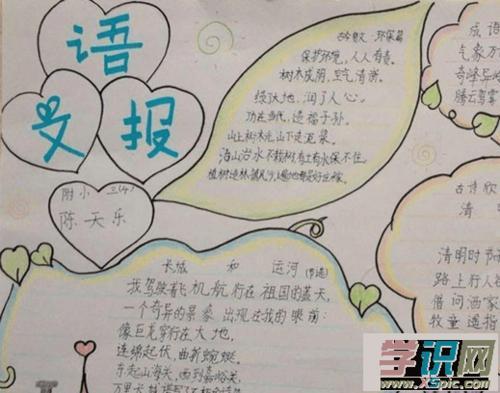 语
文
报
附小 三(4)
陈天乐
环保篇
保护环境，人人有责。
树木成荫，空气清新。
绿化大地，润了人心。
功在当代，造福子孙。
山上树木光，山下走泥浆。
治山治水不栽树，有土有水保不住。
成语
气象万
奇峰异
腾云驾雾
古诗欣
清
清明时节
路上行人
借问酒家
牧童遥指
长城 和 运河(节选)
我驾驶着飞机航行在祖国的蓝天，
一个奇异的景象出现在我的眼前：
像巨龙穿行在大地，
连绵起伏，曲折蜿蜒。
东起山海关，西到嘉峪关，
万里长城
学识网
www.XSpic.com